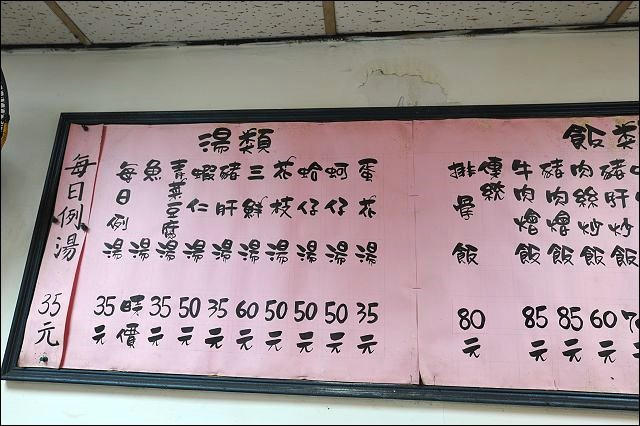 每日例湯 35元
湯類
每日例湯 35元
魚湯 時價
青菜豆腐湯 35元
蝦仁湯 50元
豬肝湯 35元
三鮮湯 60元
花枝湯 50元
蛤仔湯 50元
蚵仔湯 50元
蛋花湯 35元
飯類
傳統排骨飯 80元
牛肉燴飯 85元
豬肉燴飯 85元
肉絲炒飯 60元
豬肝炒飯